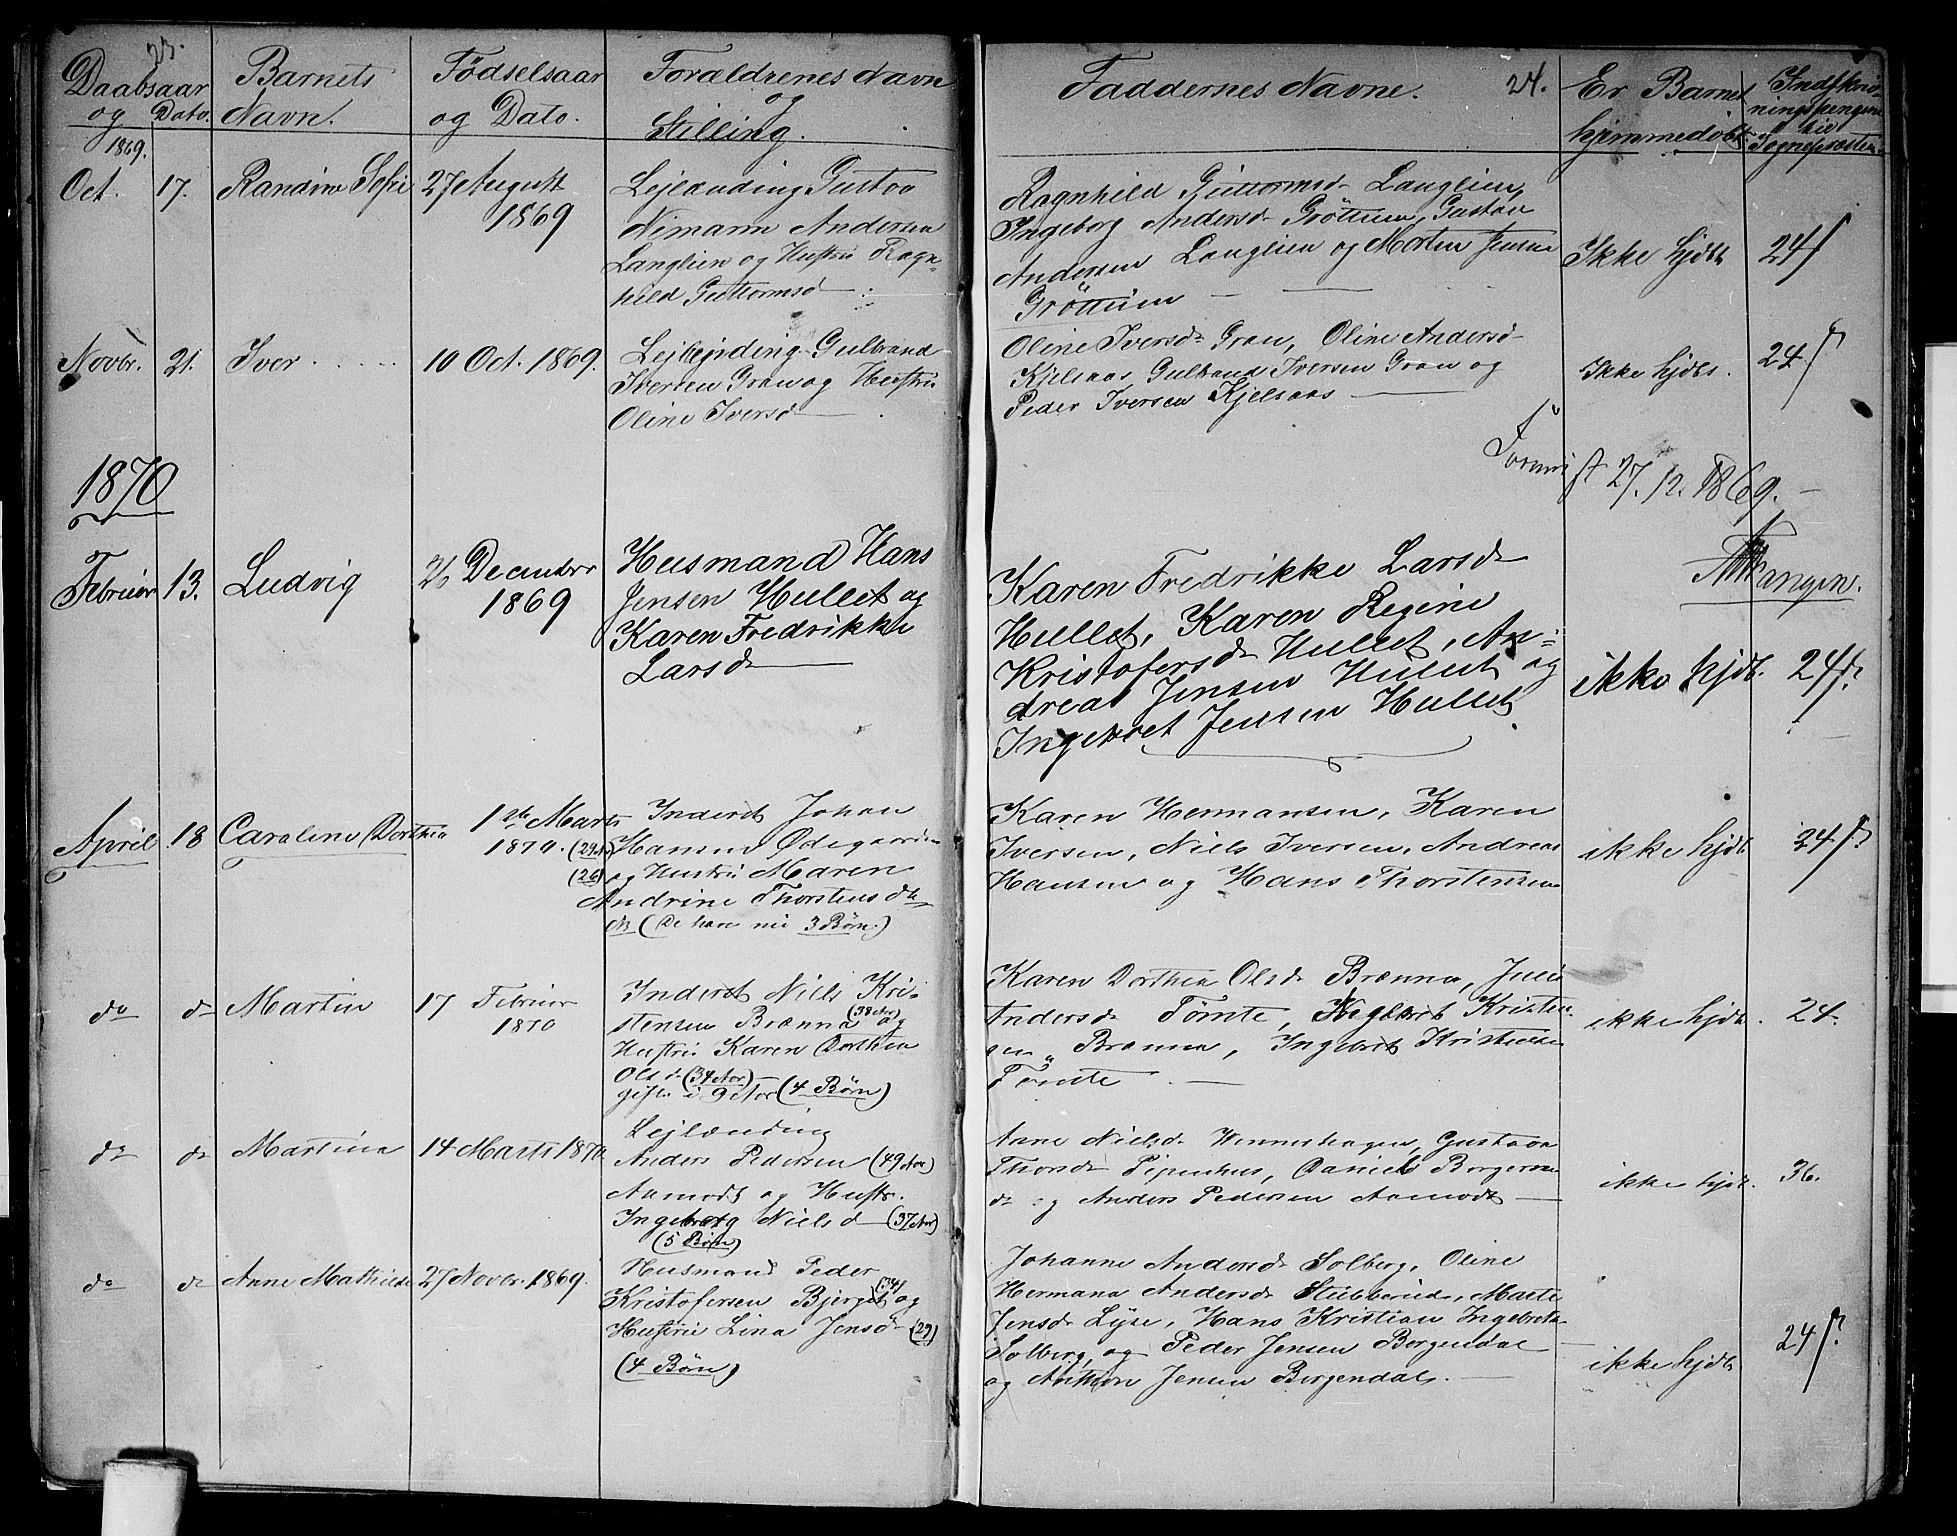 23.
Daabsaar og Dato.
Barnets Navn.
Fødselsaar og Dato.
Forældrenes Navn og Stilling.
1869.
Oct. 17. Randine Sofie 27 August 1869
Lejlænding Gustav
Nimann Andersen
Langlien og Hustru Ragn-
hild Guttormsd
Novbr. 21. Iver 10 Oct. 1869.
Lejlending Gulbrand
Iversen Gran og Hustru
Oline Iversd
1870
Februar 13. Ludvig 26 December 1869
Husmand Hans
Jensen Hullet og
Karen Fredrikke
Larsd
April 18 Caroline Dorthea 1ste Marts 1870.
Inderst Johan
(29 Aar) Hansen Ødegaarden
(26) og Hustru Maren
Andrine Thorstensdtr
NB (De have nu 3 Børn.)
do d Martin 17 Februar 1870
Inderst Niels Kri-
stensen Brænna (38 Aar) og
Hustru Karen Dorthea
Olsd (34 Aar)
gifte i 9 Aar (4 Børn)
do do Martina 14 Marts 1870
Lejlænding
Anders Pedersen (49 Aar)
Aamodt og Hustr.
Ingeborg Nielsd (37 Aar)
(5 Børn)
do do Anne Mathilde 27 Novbr. 1869.
Husmand Peder
Kristofersen Bjerget (34) og
Hustru Lina Jensd (29)
(4 Børn)
24.
Faddernes Navne.
Er Barnet hjemmedøbt
Indskriv-
ningspengene
til
Sognepresten
Ragnhild Guttormsd Langlien,
Ingeborg Andersd Grøttum, Gustav
Andersen Langlien og Morten Jensen
Grøttum
Ikke hjdbt 24 /
Oline Iversd Gran, Oline Andersd
Kjelsaas, Gulbrand Iversen Gran og
Peder Iversen Kjelsaas
Ikke hjdbt. 24 /
27.12.1869.
Karen Fredrikke Larsd
Hullet, Karen Regine
Kristofersd Hullet, An-
dreas Jensen Hullet og
Ingebret Jensen Hullet
ikke hjdb. 24
Karen Hermansen, Karen
Iversen, Niels Iversen, Andreas
Hansen og Hans Thorstensen
ikke hjdb 24
Karen Dorthea Olsd Brænna, Julie
Andersd Tømte, Ingebret Kristen-
sen Brænna, Ingebret Kristensen
Tømte
ikke hjdb. 24
Anne Nielsd Wennershagen, Gustava
Thorsd Pipenhus, Daniel Borgersen
do og Anders Pedersen Aamodt
ikke hjdb. 36.
Johanne Andersd Solberg, Oline
Hermana Andersd Stubberud, Marte
Jensd Lyse, Hans Kristian Ingebretsen
Solberg, og Peder Jensen Borgendal
og Anthon Jensen Borgendal.
ikke hjdb 24